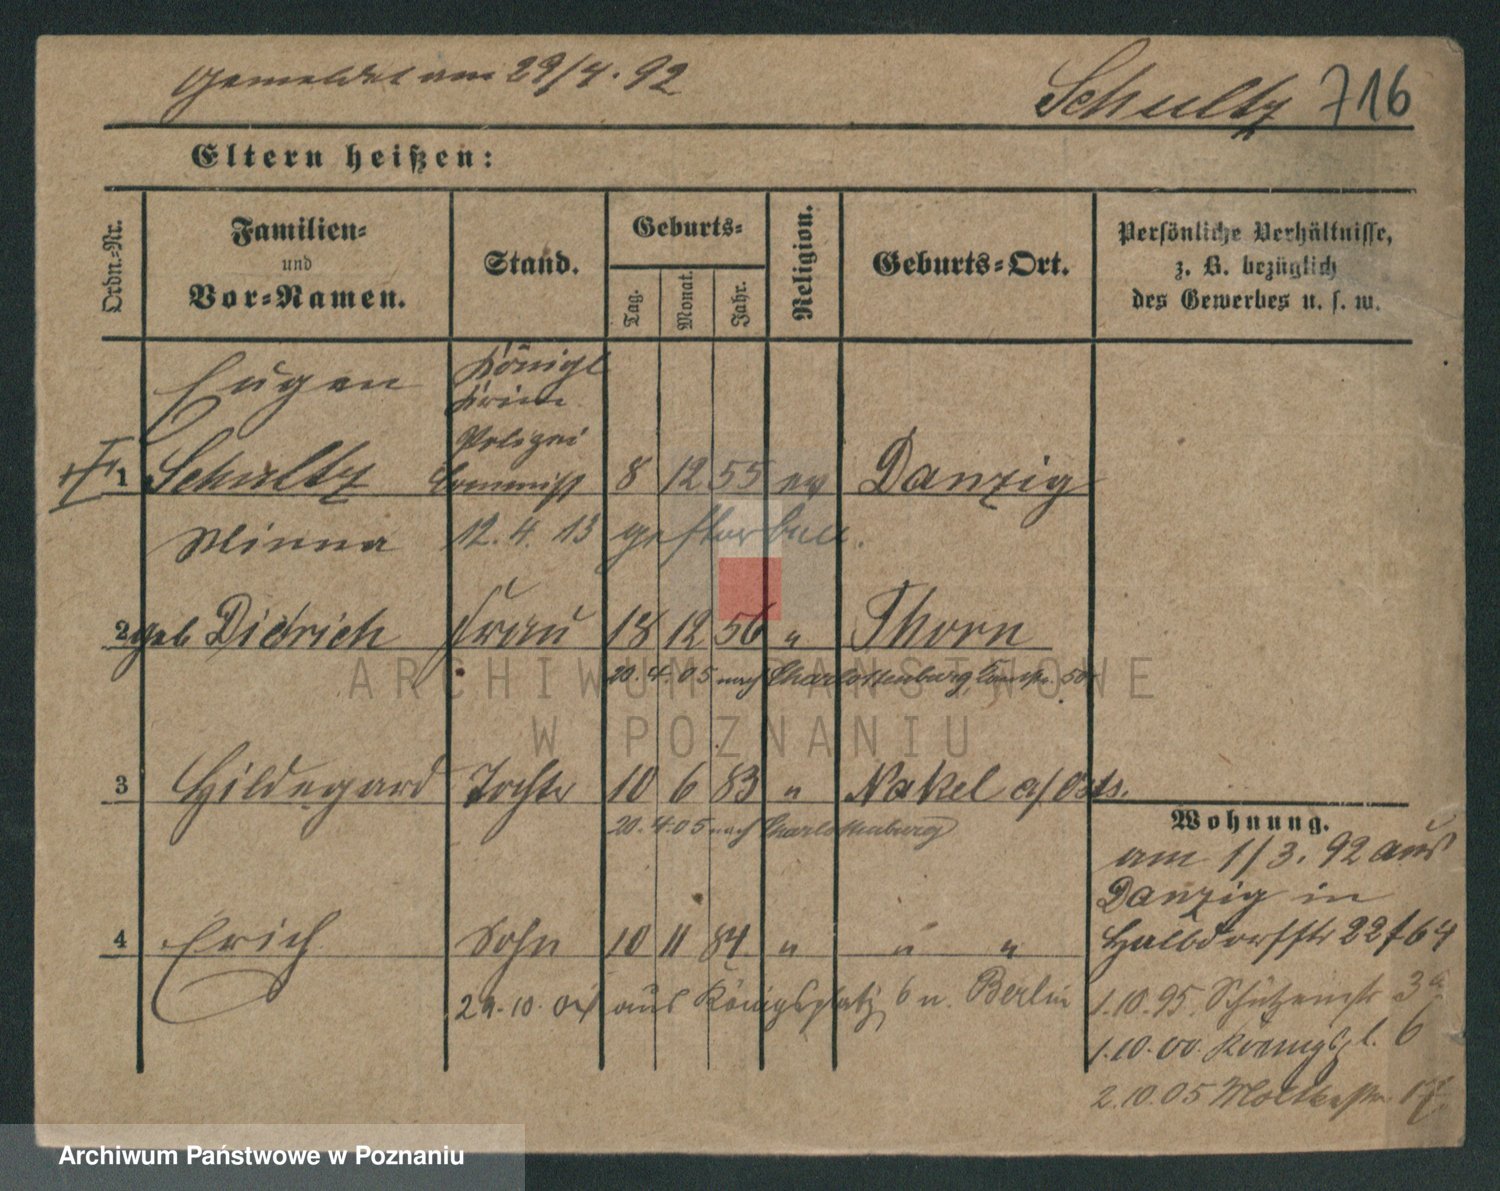 Gemeldet am 29/4. 92
Schultz 716
Eltern heißen:
Ordn.-Nr.
Familien-
und
Vor-Namen.
Stand.
Geburts-
Tag.
Monat.
Jahr.
Religion.
Geburts-Ort.
Persönliche Verhältnisse,
z. B. bezüglich
des Gewerbes u. s. w.
Eugen Königl
Krim.
Polizei
1 Schultz Commiss 8 12 55 ev Danzig
Minna 12. 4. 13 gestorben.
2 geb Didrich Frau 18 12 56 " Thorn
20. 4. 05 nach Charlottenburg, 50
3 Hildegard Tochter 10 6 83 " Nakel a/Osts.
20. 4. 05 nach Charlottenburg
4 Erich Sohn 10 11 84 " " "
29. 10. aus Königsplatz 6 n. Berlin
Wohnung.
am 1/3. 92 aus
Danzig in
Halbdorfstr 22 f 64
1.10.95. Schützenstr 3a
1.10.00. Königspl. 6
2.10.05 Moltkestr 17
ARCHIWUM PAŃSTWOWE
W POZNANIU
Archiwum Państwowe w Poznaniu